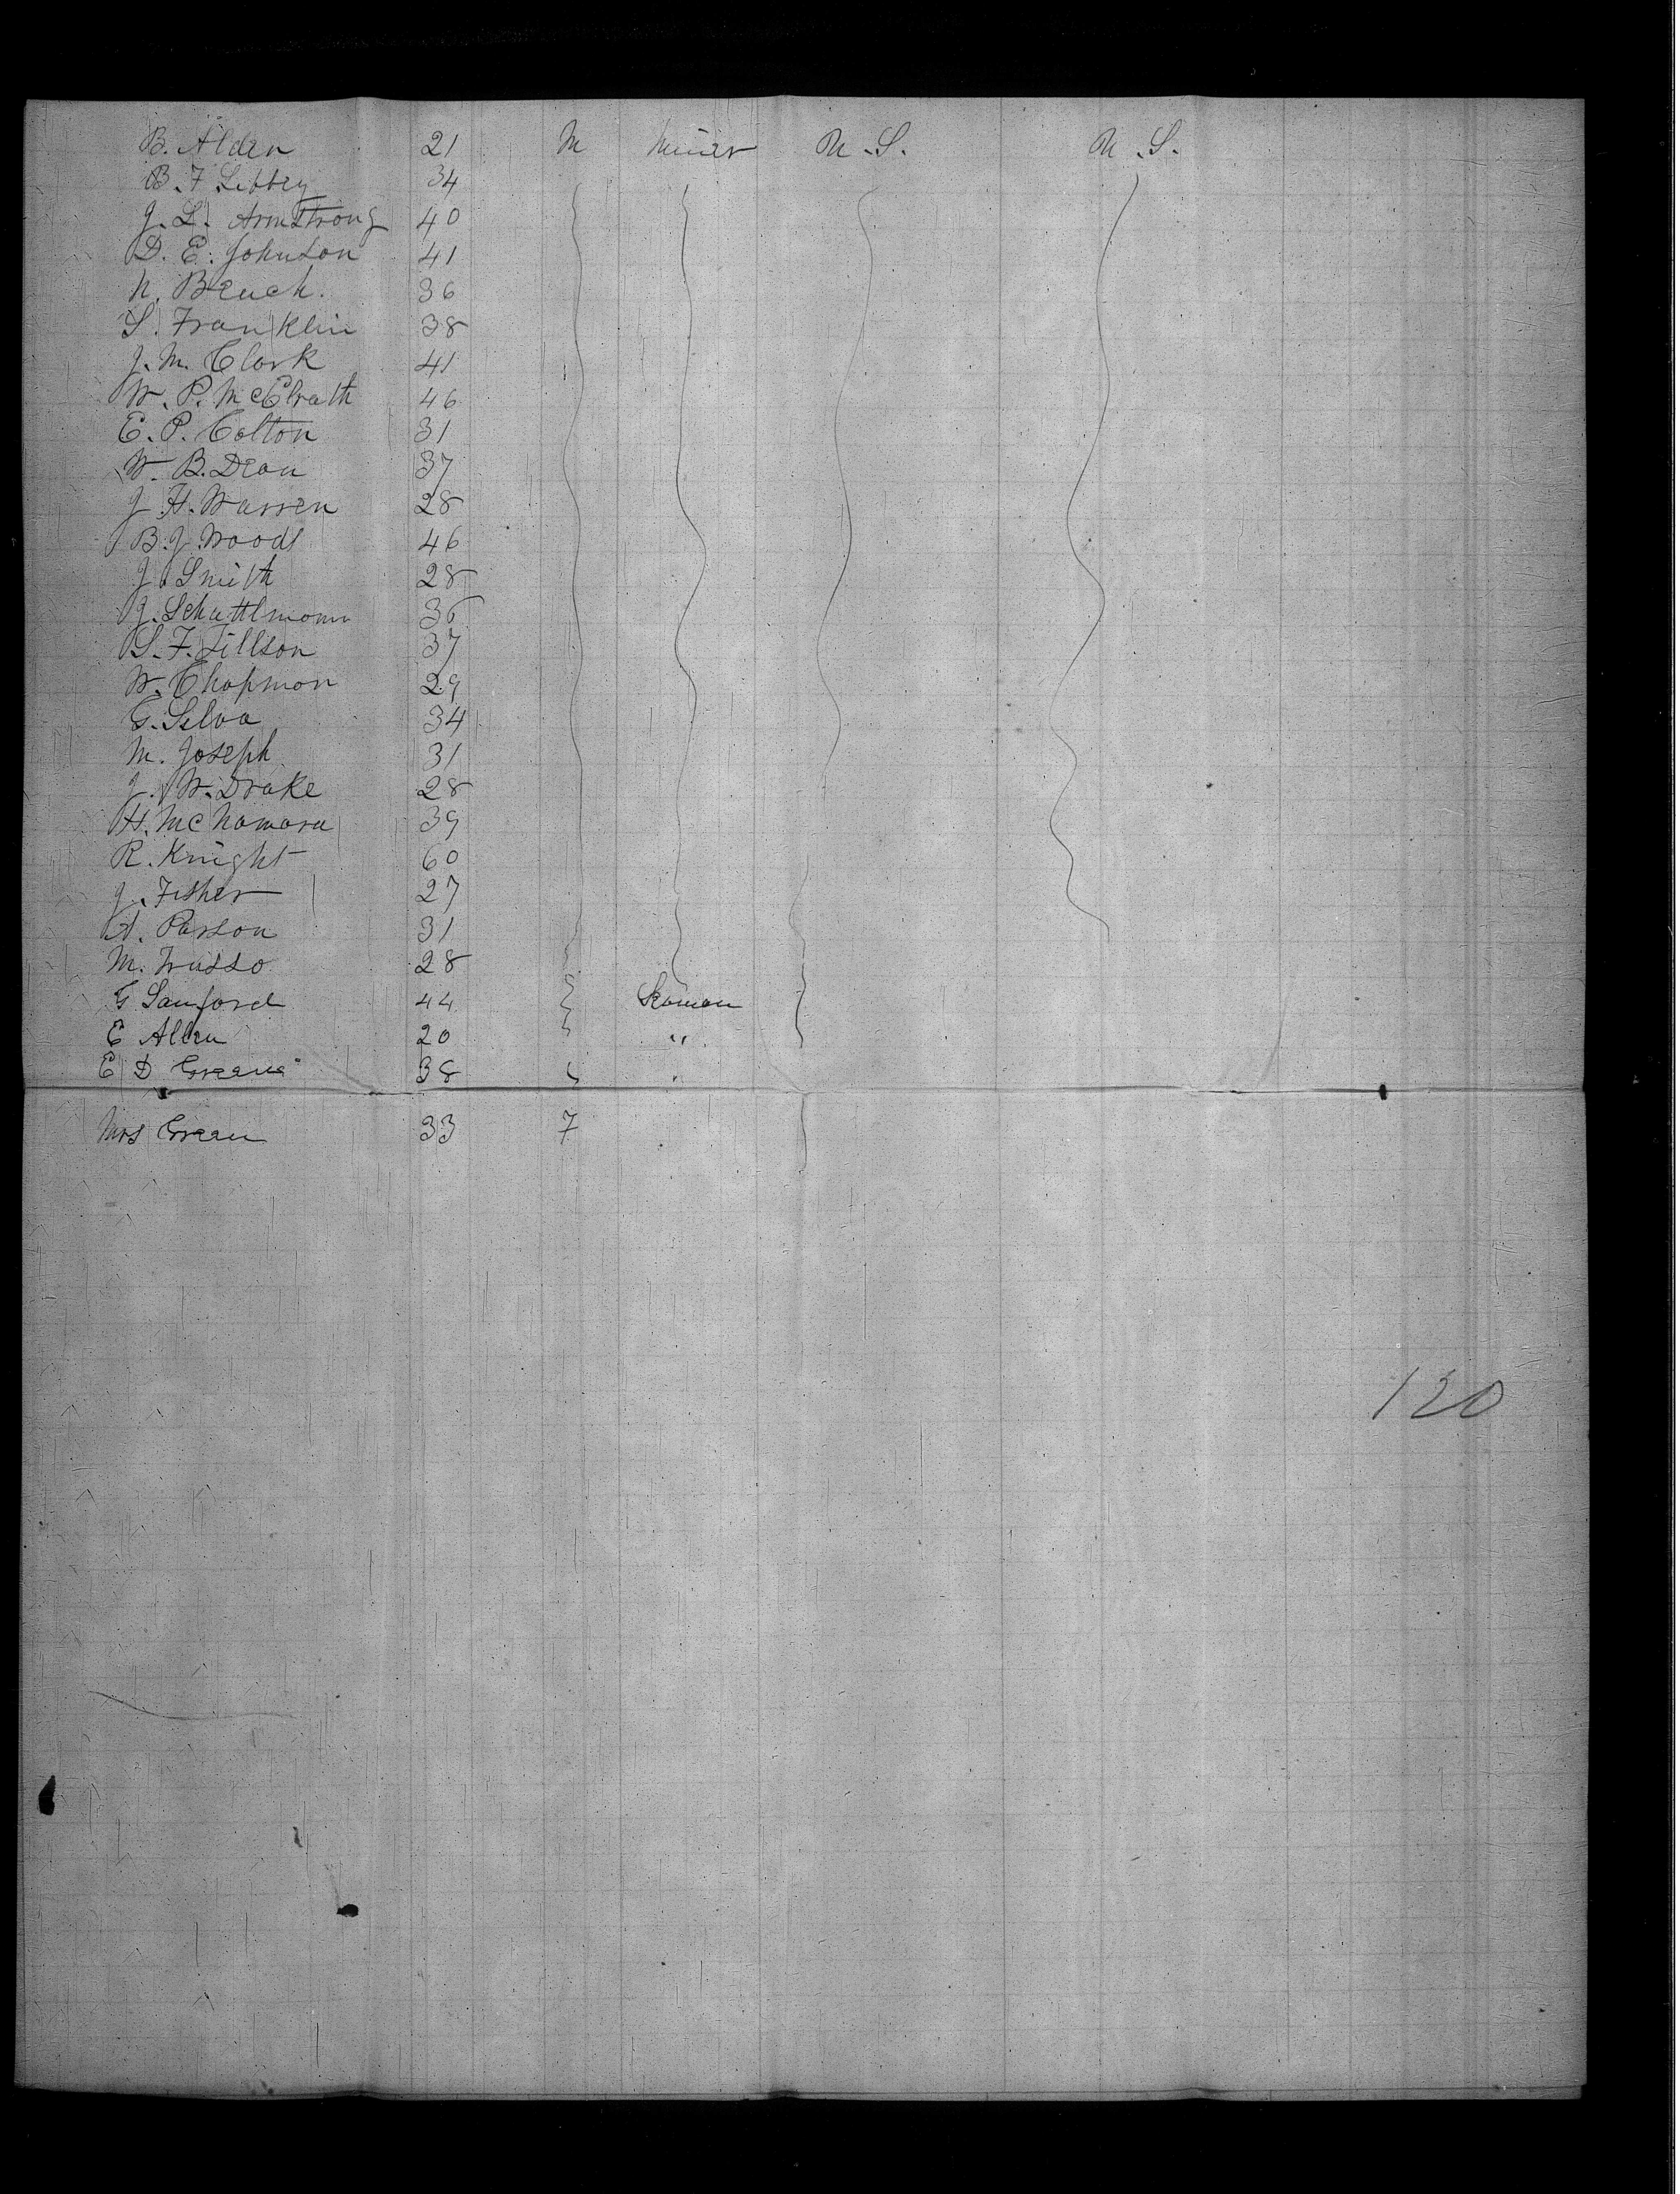 B. Alden 21 M Miner U.S. U.S.
B. F Libbey 34
J. L. Armstrong 40
D. E. Johnson 41
N. Beuch. 36
S. Franklin 38
J. M. Clark 41
W. P. McElrath 46
E. P. Colton 31
W. B. Dean 37
J. H. Warren 28
B. J. Woods 46
J. Smith 28
J. Schuttlmann 36
S. F. Tillson 37
W. Chapman 29
G. Selva 34
M. Joseph 31
J. W. Drake 28
H. McNamara 39
R. Knight 60
J. Fisher 27
A. Parson 31
M. Trusso 28
G Sanford 44 Seaman
E Allen 20 "
E D Greene 38 "
Mrs Green 33 F
120